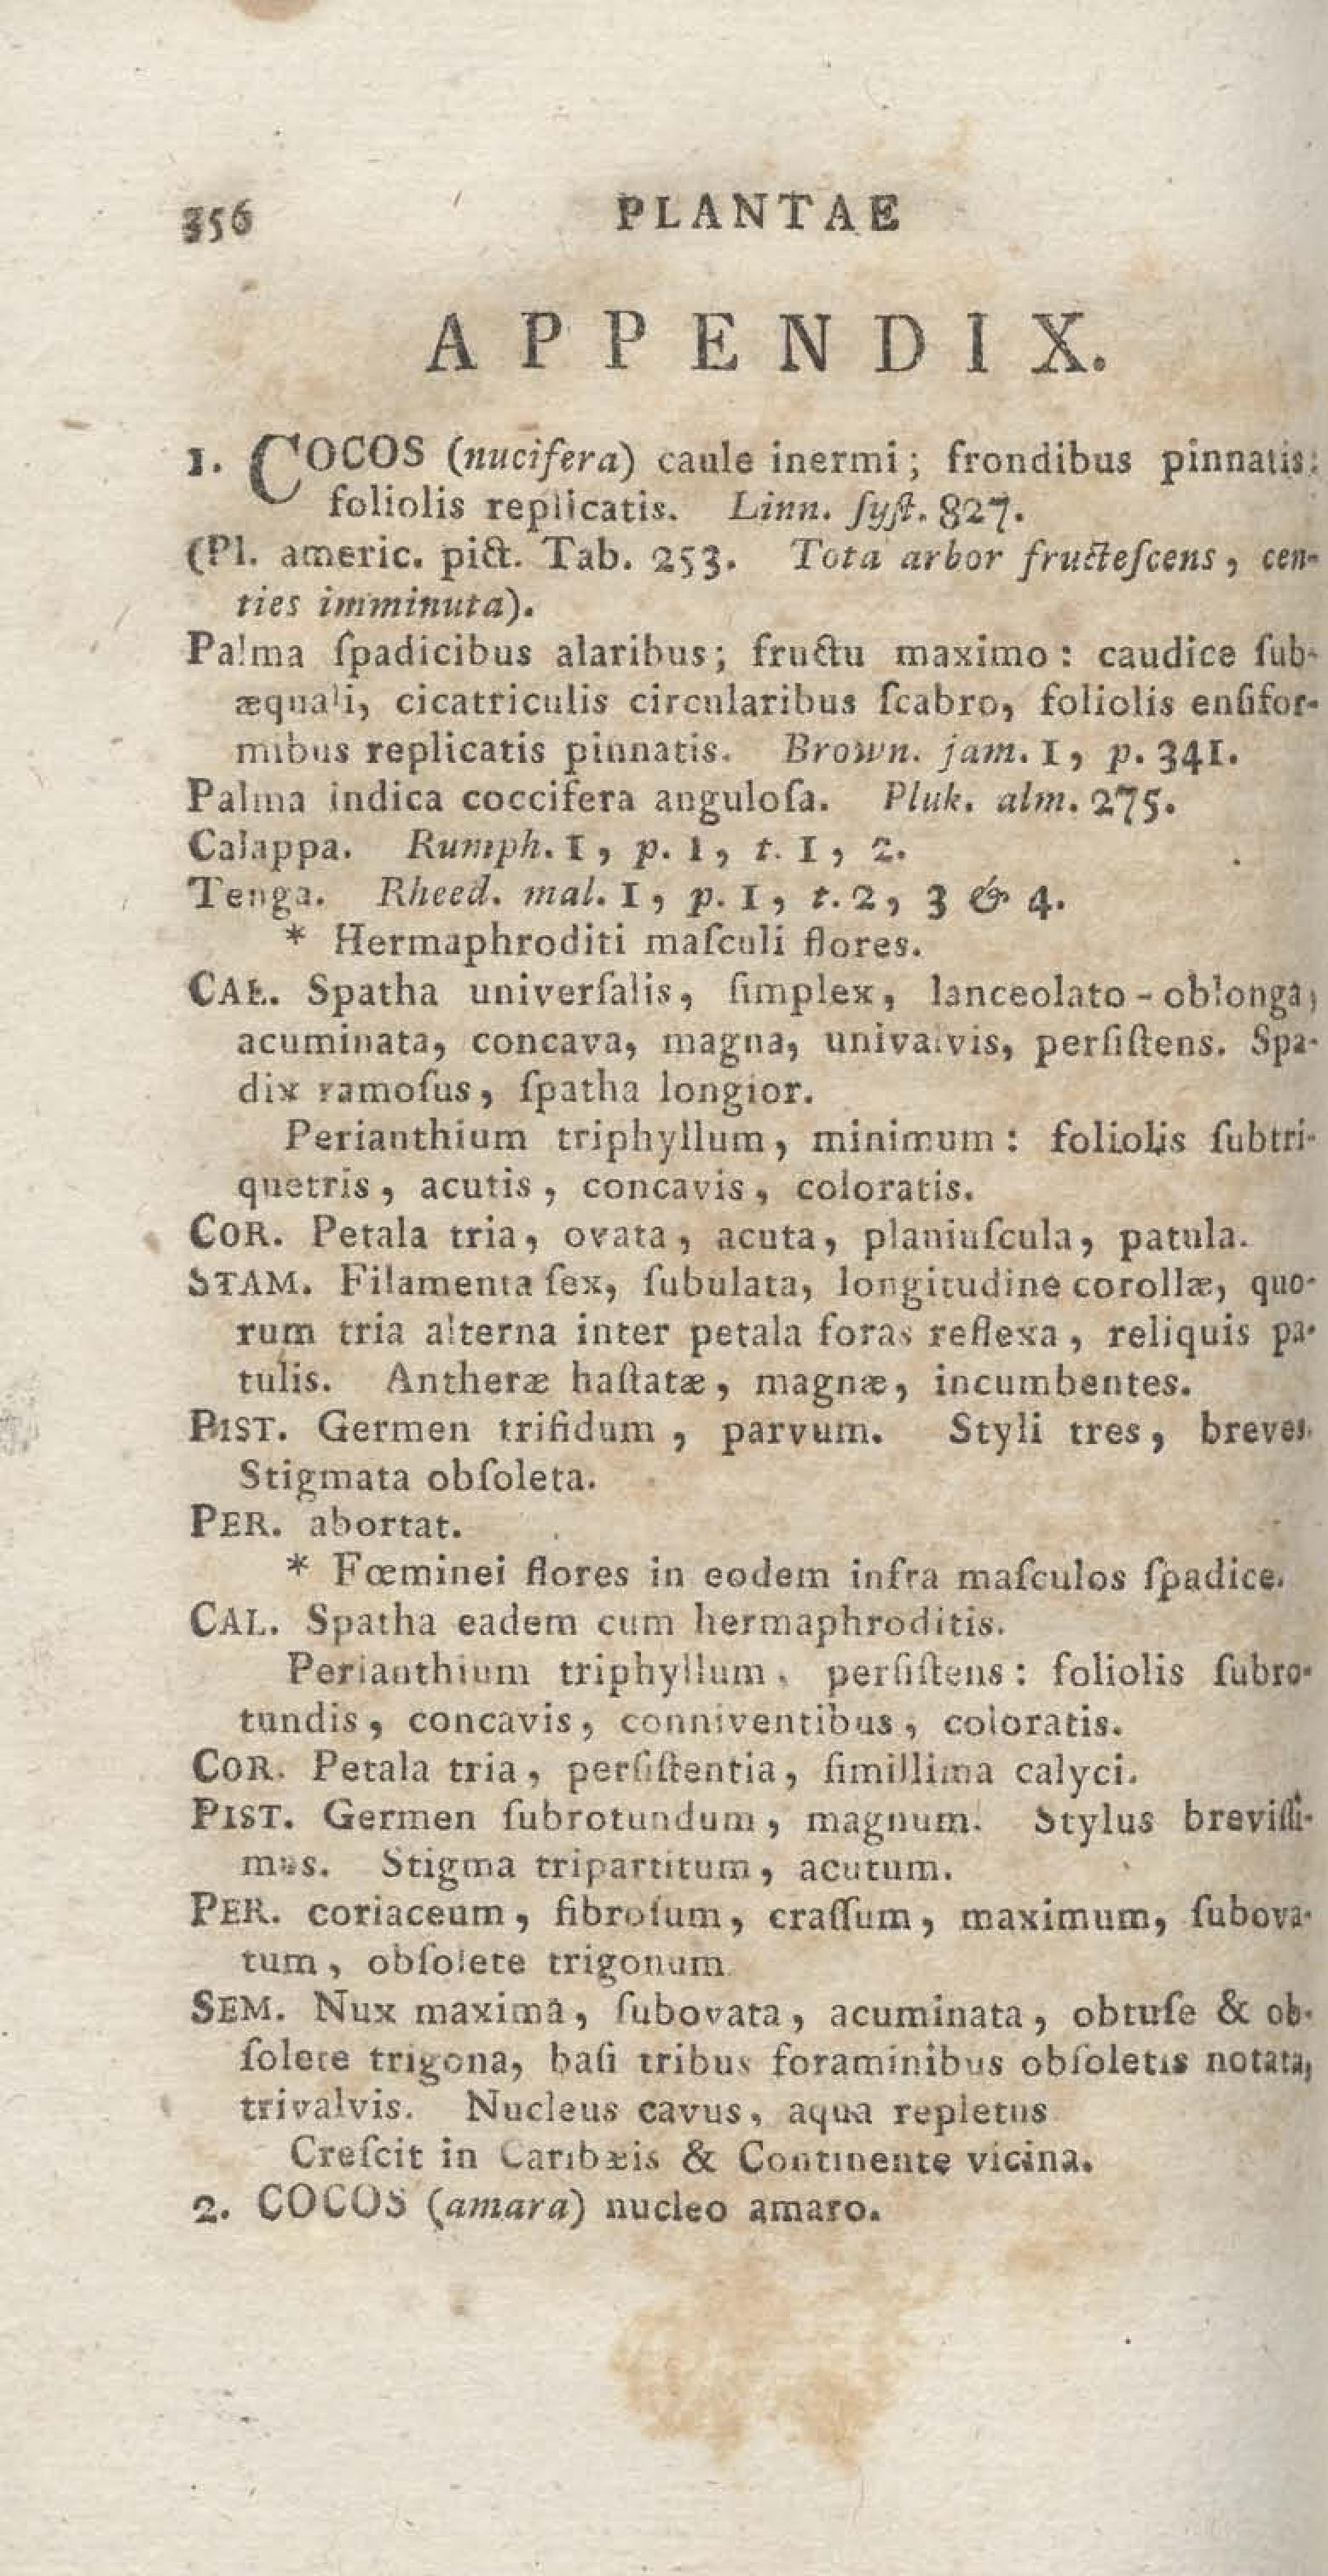 356 PLANTAE
APPENDIX.
1. COCOS (nucifera) caule inermi; frondibus pinnatis:
foliolis replicatis. Linn. ſyſt. 827.
(Pl. americ. pict. Tab. 253. Tota arbor fructeſcens, cen-
ties imminuta).
Palma ſpadicibus alaribus; fructu maximo: caudice ſub-
æquali, cicatriculis circularibus ſcabro, foliolis enſifor-
mibus replicatis pinnatis. Brown. jam. 1, p. 341.
Palma indica coccifera anguloſa. Pluk. alm. 275.
Calappa. Rumph. 1, p. 1, t. 1, 2.
Tenga. Rheed. mal. 1, p. 1, t. 2, 3 & 4.
* Hermaphroditi maſculi flores.
CAL. Spatha univerſalis, ſimplex, lanceolato-oblonga,
acuminata, concava, magna, univalvis, perſiſtens. Spa-
dix ramoſus, ſpatha longior.
Perianthium triphyllum, minimum: foliolis ſubtri-
quetris, acutis, concavis, coloratis.
COR. Petala tria, ovata, acuta, planiuſcula, patula.
STAM. Filamenta ſex, ſubulata, longitudine corollæ, quo-
rum tria alterna inter petala foras reflexa, reliquis pa-
tulis. Antheræ haſtatæ, magnæ, incumbentes.
PIST. Germen trifidum, parvum. Styli tres, breves.
Stigmata obſoleta.
PER. abortat.
* Fœminei flores in eodem infra maſculos ſpadice.
CAL. Spatha eadem cum hermaphroditis.
Perianthium triphyllum, perſiſtens: foliolis ſubro-
tundis, concavis, conniventibus, coloratis.
COR. Petala tria, perſiſtentia, ſimillima calyci.
PIST. Germen ſubrotundum, magnum. Stylus breviſſi-
mus. Stigma tripartitum, acutum.
PER. coriaceum, fibroſum, craſſum, maximum, ſubova-
tum, obſolete trigonum.
SEM. Nux maxima, ſubovata, acuminata, obtuſe & ob-
ſolete trigona, baſi tribus foraminibus obſoletis notata,
trivalvis. Nucleus cavus, aqua repletus
Creſcit in Caribæis & Continente vicina.
2. COCOS (amara) nucleo amaro.